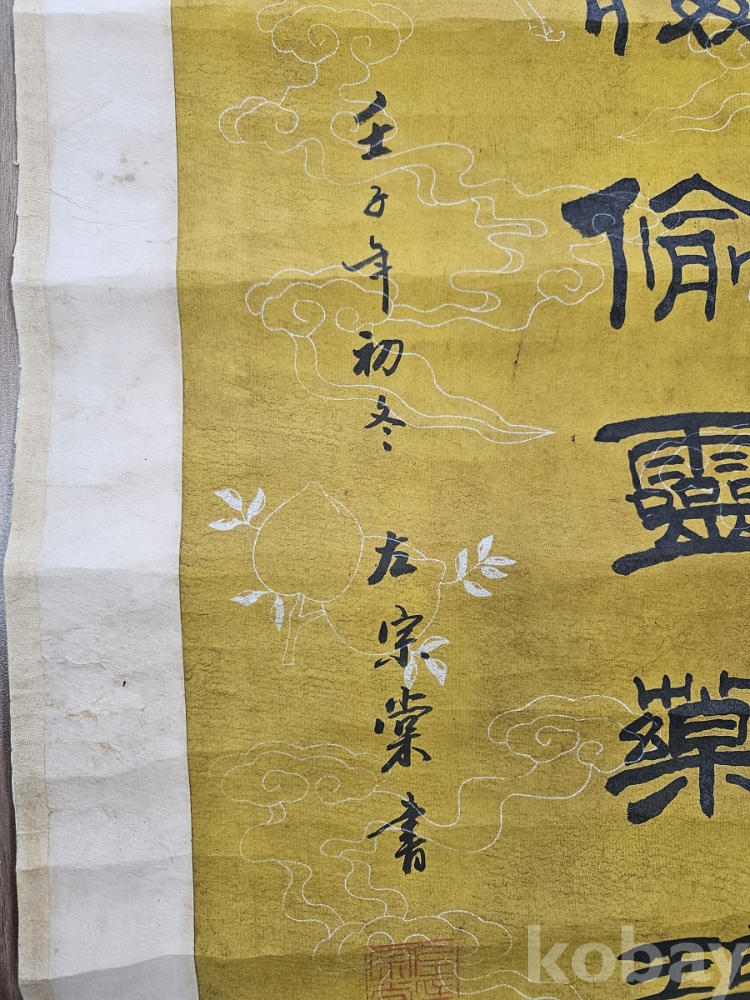 偷靈藥
壬子年初冬 左宗棠書
kobay